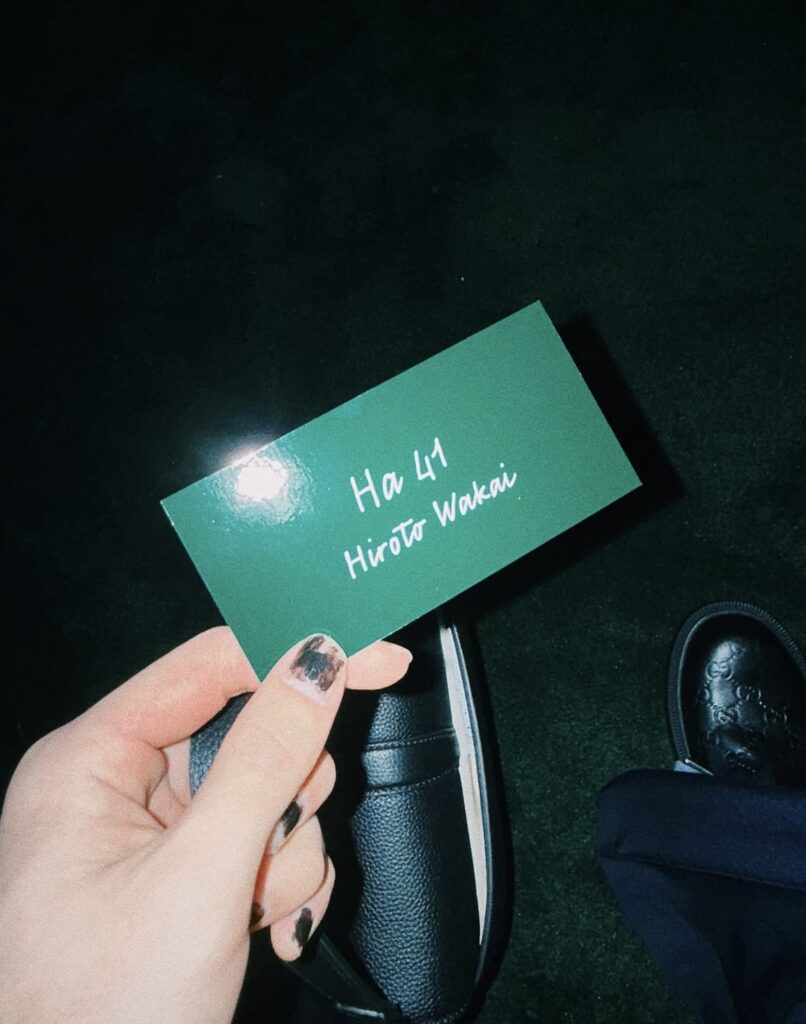 Ha 41
Hiroto Wakai